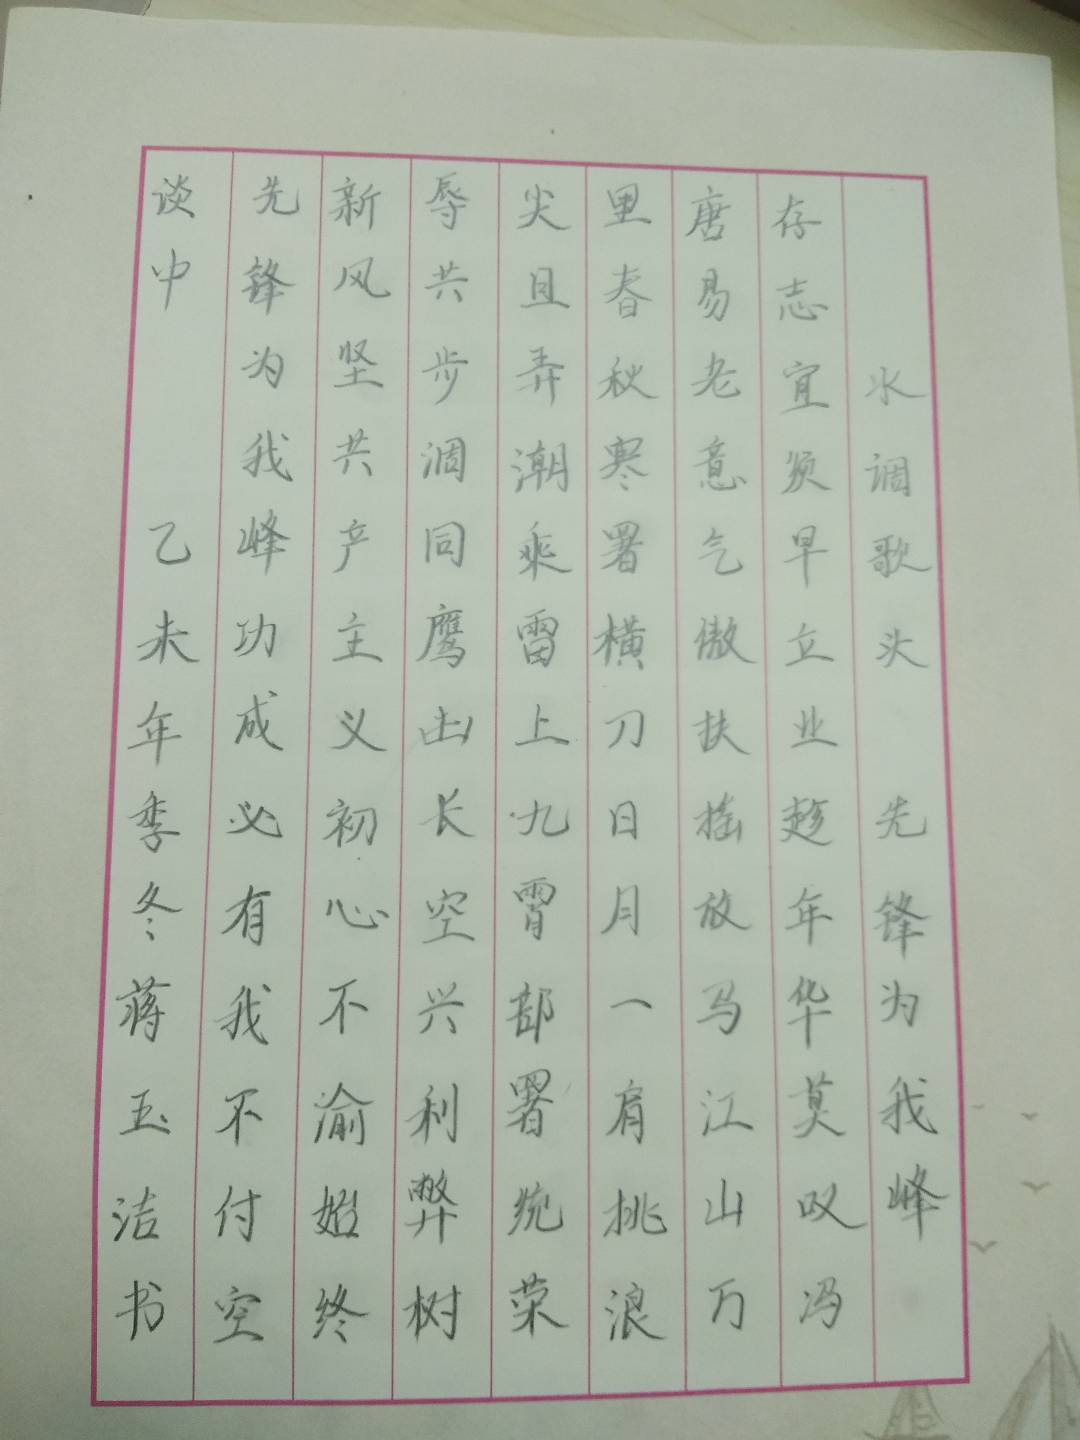 水调歌头 先锋为我峰
存志宜须早立业趁年华莫叹冯
唐易老意气傲扶摇放马江山万
里春秋寒署横刀日月一肩挑浪
尖且弄潮乘雷上九霄部署统荣
辱共步调同鹰击长空兴利弊树
新风坚共产主义初心不渝始终
先锋为我峰功成必有我不付空
谈中 乙未年季冬蒋玉洁书